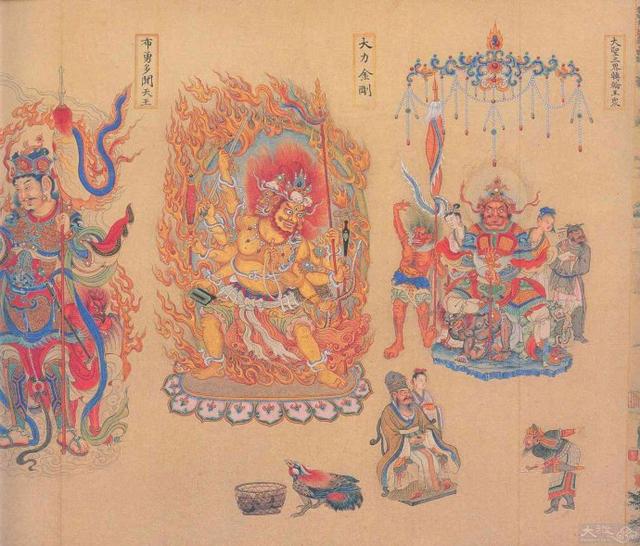 大聖三界轉輪王眾
大力金剛
布勇多聞天王